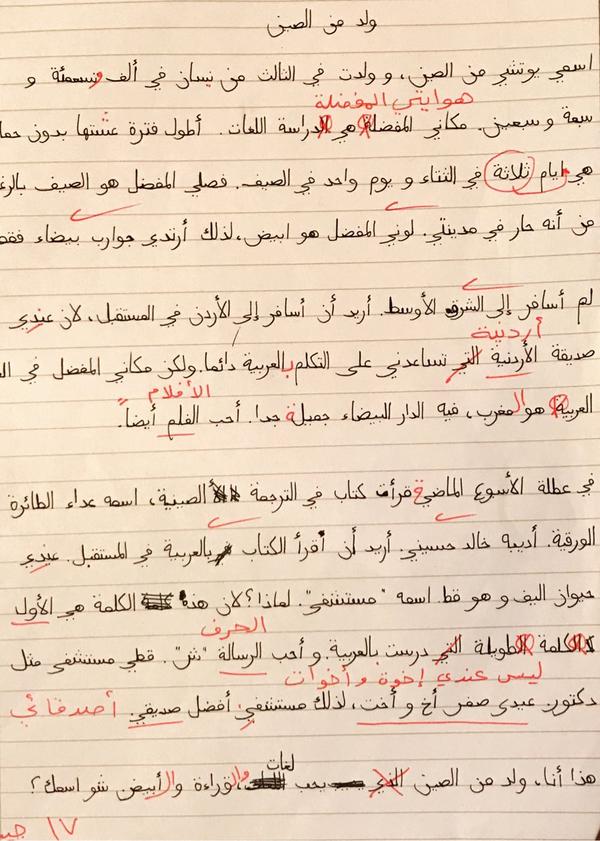 ولد من الصين
اسمي يوتشي من الصين، و ولدت في الثالث من نيسان في ألف وتسعمئة و
هوايتي المفضلة
سبعة و سبعين. مكاني المفضلة هي الدراسة اللغات. أطول فترة عشتها بدون حما
هي ايام ثلاثة في الشتاء و يوم واحد في الصيف. فصلي المفضل هو الصيف بالرغ
من أنه حار في مدينتي. لوني المفضل هو ابيض، لذلك أرتدي جوارب بيضاء فقط
لم أسافر إلى الشرق الأوسط. أريد أن أسافر إلى الأردن في المستقبل، لان عندي
أردنية
صديقة الأردنية التي تساعدني على التكلم بالعربية دائما. ولكن مكاني المفضل في ال
الأفلام
العربية هو المغرب، فيه الدار البيضاء جميلة جدا. أحب الفلم أيضاً.
في عطلة الأسبوع الماضي قرأت كتاب في الترجمة الصينية، اسمه عداء الطائرة
الورقية. أديبه خالد حسيني. أريد أن أقرأ الكتاب بالعربية في المستقبل. عندي
حيوان اليف و هو قط. اسمه "مستشفى". لماذا؟ لان هذه الكلمة هي الأول
الحرف
الكلمة الطويلة التي درست بالعربية. و أحب الرسالة "ش". قطي مستشفى مثل
ليس عندي إخوة و أخوات
دكتور. عيدي صفر أخ و أخت، لذلك مستشفى أفضل صديقي. أصدقائي
لغات
هذا أنا، ولد من الصين الذي يحب والقراءة والأبيض. شو اسمك؟
١٧